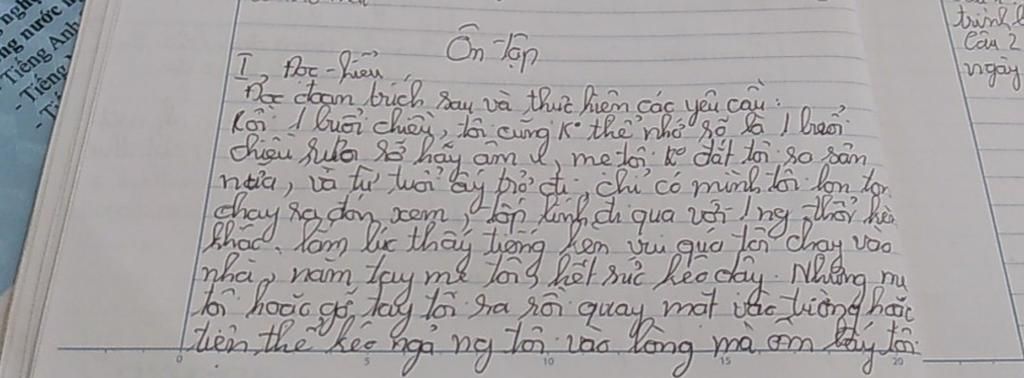 Ôn tập
I, Đọc - hiểu
Đọc đoạn trích sau và thực hiện các yêu cầu:
Rồi 1 buổi chiều, tôi cũng ko thể nhớ rõ là 1 buổi
chiều rười rỡ hay âm u, mẹ tôi ko dắt tôi ra sân
nữa, và từ tuổi ấy trở đi, chỉ có mình tôi lon ton
chạy ra đón xem, tốp lính đi qua với 1 ng thổi kèn
khác. Lắm lúc thấy tiếng kèn vui quá tôi chạy vào
nhà, nắm tay mẹ tôi, hết sức kéo dậy. Nhưng mẹ
tôi hoặc gỡ tay tôi ra rồi quay mặt vào tường hoặc
tiện thể kéo ngả ng tôi vào lòng mà ôm lấy tôi
trình
Câu 2
ngày
nước
- Tiếng Anh
- Tiếng